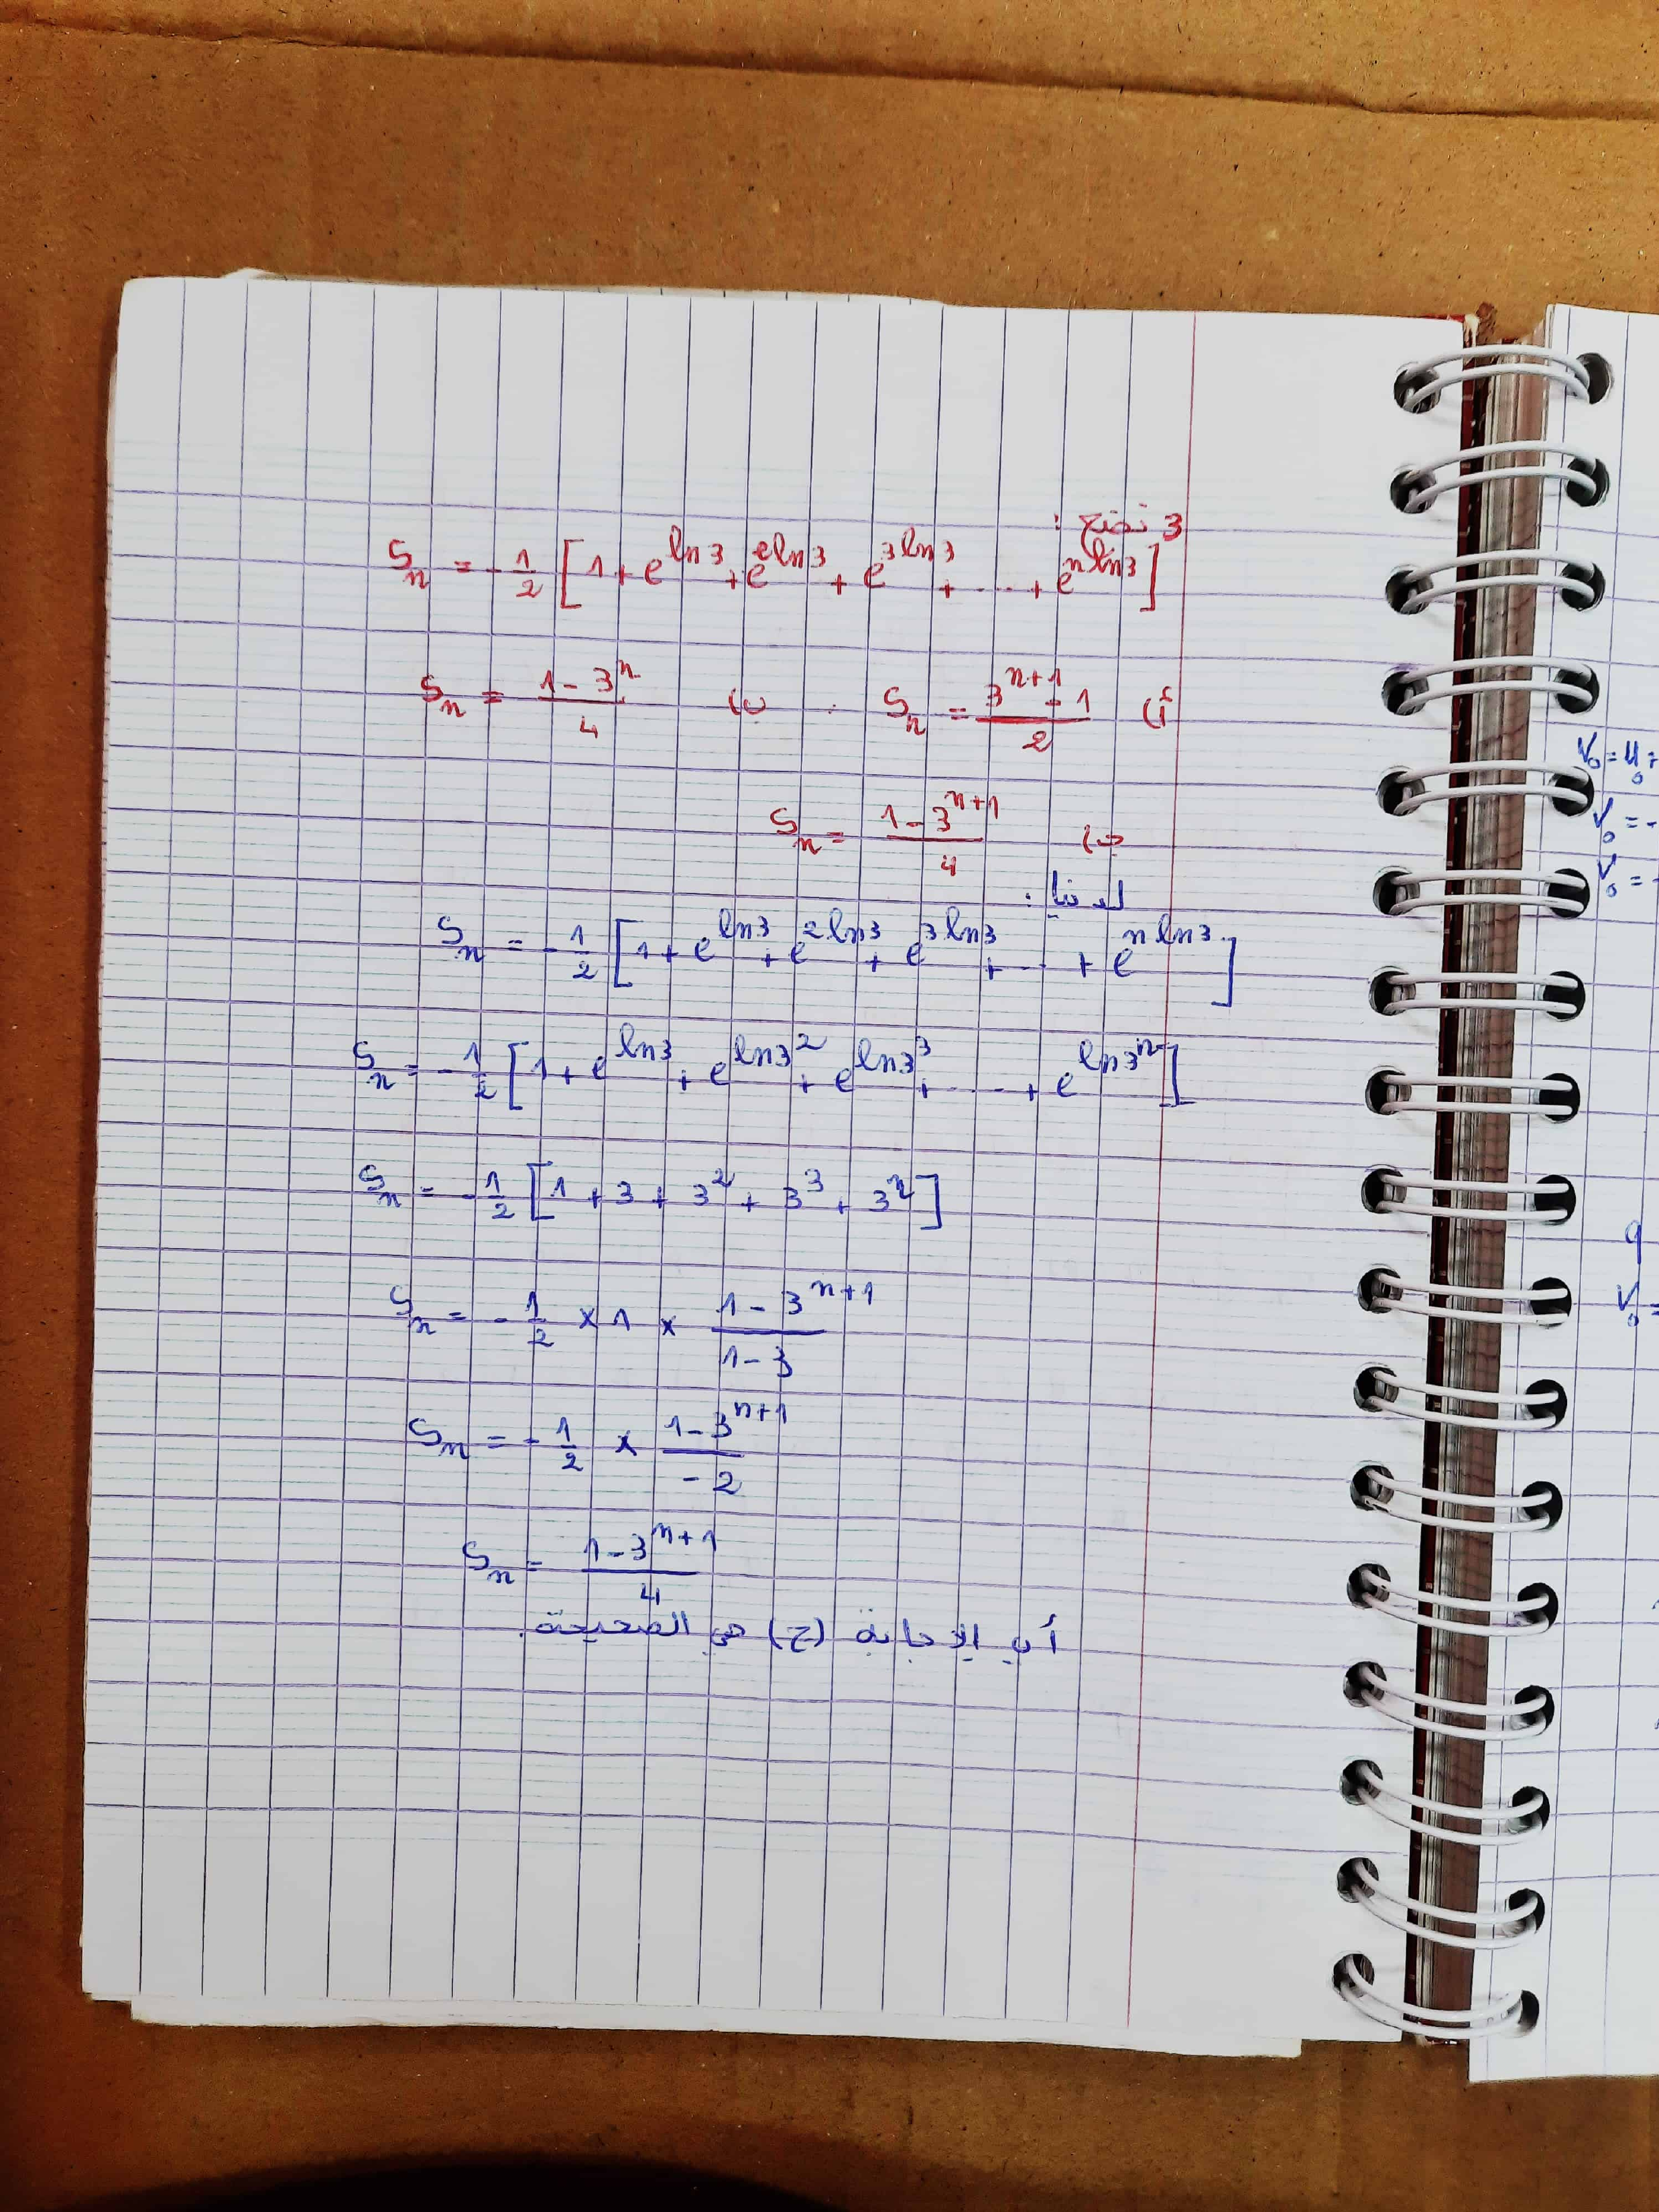 3 نضع :
Sₙ = -1/2 [1 + e^ln3 + e^2ln3 + e^3ln3 + ... + e^nln3]
أ) Sₙ = (3^(n+1) - 1)/2 . ب) Sₙ = (1 - 3^n)/4
ج) Sₙ = (1 - 3^(n+1))/4
لدينا :
Sₙ = -1/2 [1 + e^ln3 + e^2ln3 + e^3ln3 + ... + e^nln3]
Sₙ = -1/2 [1 + e^ln3 + e^ln3² + e^ln3³ + ..... + e^ln3ⁿ]
Sₙ = -1/2 [1 + 3 + 3² + 3³ + 3ⁿ]
Sₙ = -1/2 × 1 × (1 - 3^(n+1))/(1 - 3)
Sₙ = -1/2 × (1 - 3^(n+1))/(-2)
Sₙ = (1 - 3^(n+1))/4
أي الإجابة (ج) هي الصحيحة.
V₀ = U₀ +
V₀ = -
V₀ = -
q
V₀ =